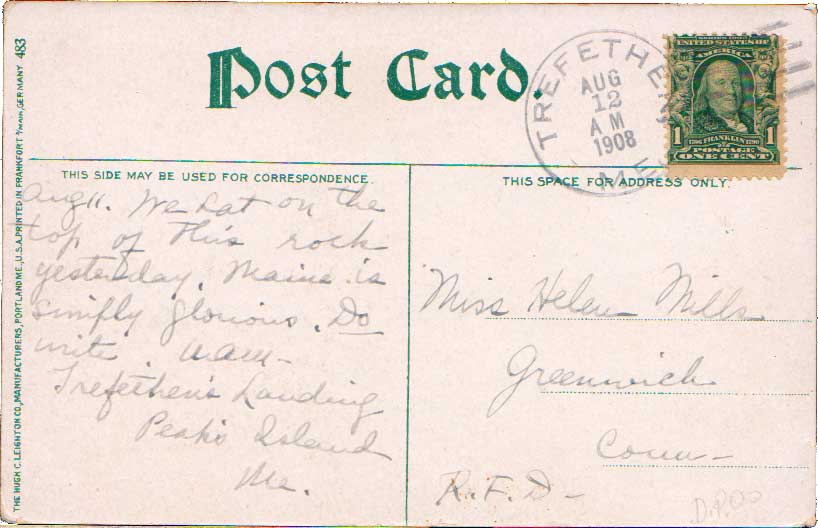 483
THE HUGH C. LEIGHTON CO., MANUFACTURERS, PORTLAND, ME., U.S.A. PRINTED IN FRANKFORT a/MAIN, GERMANY
Post Card.
TREFETHEN
AUG
12
AM
1908
ME.
SERIES 1902
UNITED STATES OF
AMERICA
1 1706 FRANKLIN 1790 1
POSTAGE
ONE CENT
THIS SIDE MAY BE USED FOR CORRESPONDENCE.
Aug 11. We sat on the
top of this rock
yesterday. Maine is
simply glorious. Do
write.
Trefethen's Landing
Peak's Island
Me.
THIS SPACE FOR ADDRESS ONLY.
Miss Helen Mills
Greenwich
Conn-
R.F.D-